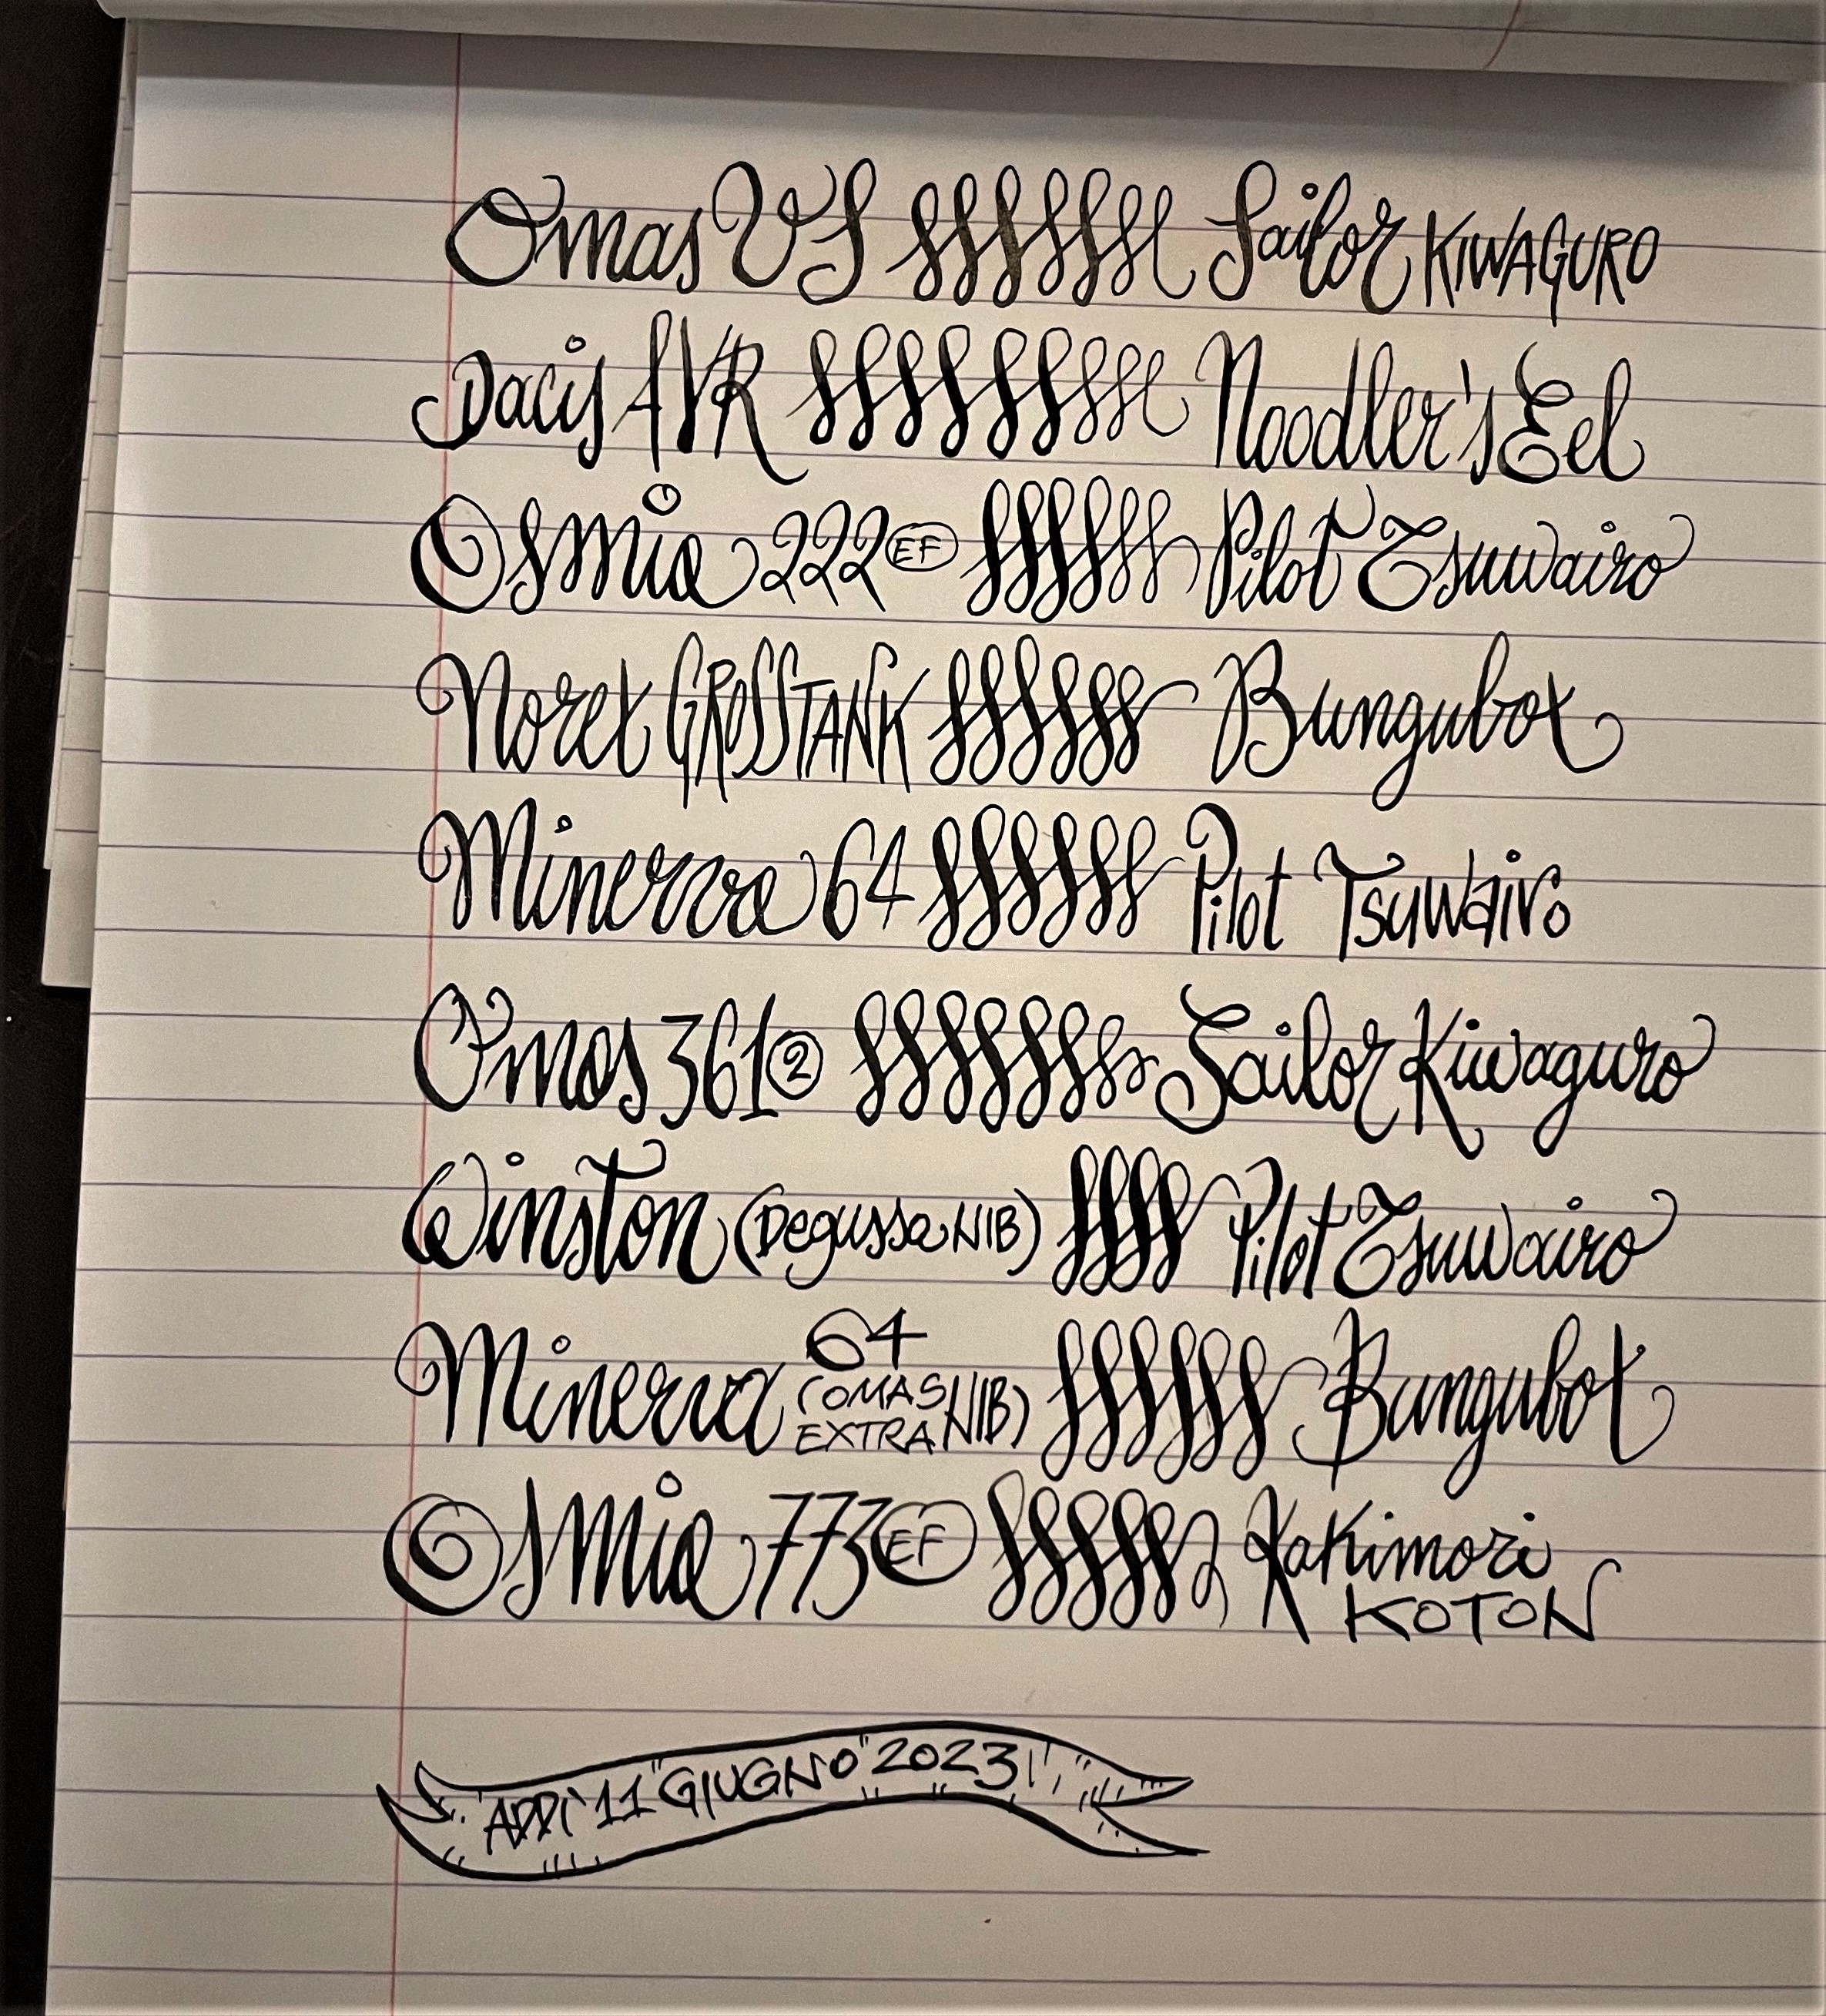 Omas VS Sailor KIWAGURO
Dacis AVR Noodler's Eel
Osmia 222 EF Pilot Tsuwairo
Noret GROSSTANK Bungubox
Minerva 64 Pilot Tsuwairo
Omas 361 2 Sailor Kiwaguro
Winston (Degussa NIB) Pilot Tsuwairo
Minerva 64 (OMAS EXTRA NIB) Bungubox
Osmia 773 EF Kakimori
KOTON
ADDI' 11 "GIUGNO" 2023